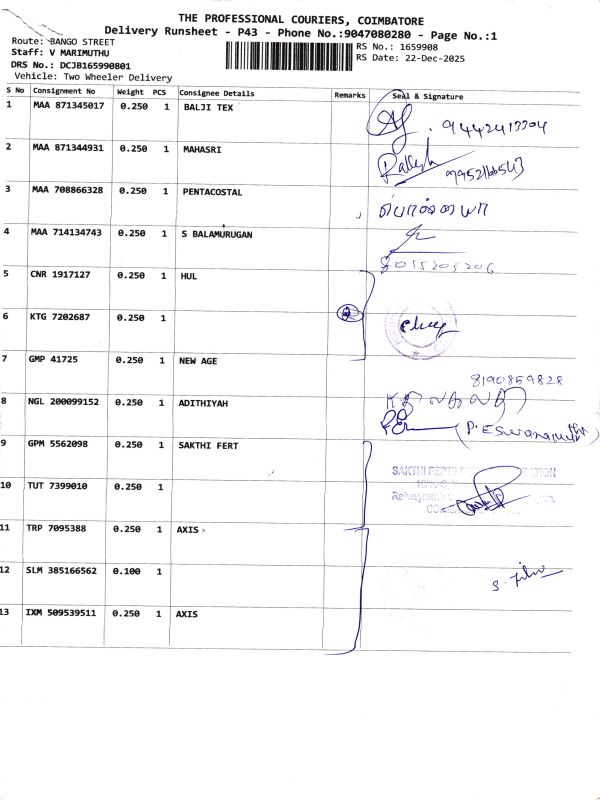 THE PROFESSIONAL COURIERS, COIMBATORE
Delivery Runsheet - P43 - Phone No.:9047080280 - Page No.:1
Route: BANGO STREET
Staff: V MARIMUTHU
DRS No.: DCJB165990801
Vehicle: Two Wheeler Delivery
RS No.: 1659908
RS Date: 22-Dec-2025
S No Consignment No Weight PCS Consignee Details Remarks Seal & Signature
1 MAA 871345017 0.250 1 BALJI TEX
2 MAA 871344931 0.250 1 MAHASRI
3 MAA 708866328 0.250 1 PENTACOSTAL
4 MAA 714134743 0.250 1 S BALAMURUGAN
5 CNR 1917127 0.250 1 HUL
6 KTG 7202687 0.250 1
7 GMP 41725 0.250 1 NEW AGE
8190859828
8 NGL 200099152 0.250 1 ADITHIYAH
9 GPM 5562098 0.250 1 SAKTHI FERT
SAKTHI FERT
10 TUT 7399010 0.250 1
11 TRP 7095388 0.250 1 AXIS
12 SLM 385166562 0.100 1
13 IXM 509539511 0.250 1 AXIS